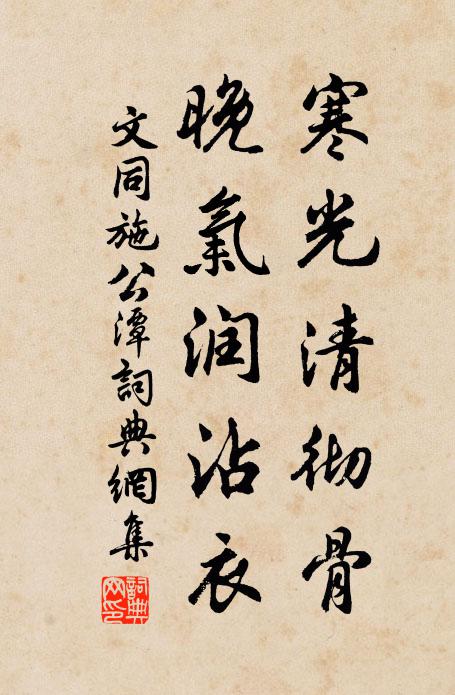 寒光清彻骨
晚氣润沾衣
文同施公潭詞典網集
詞典网印